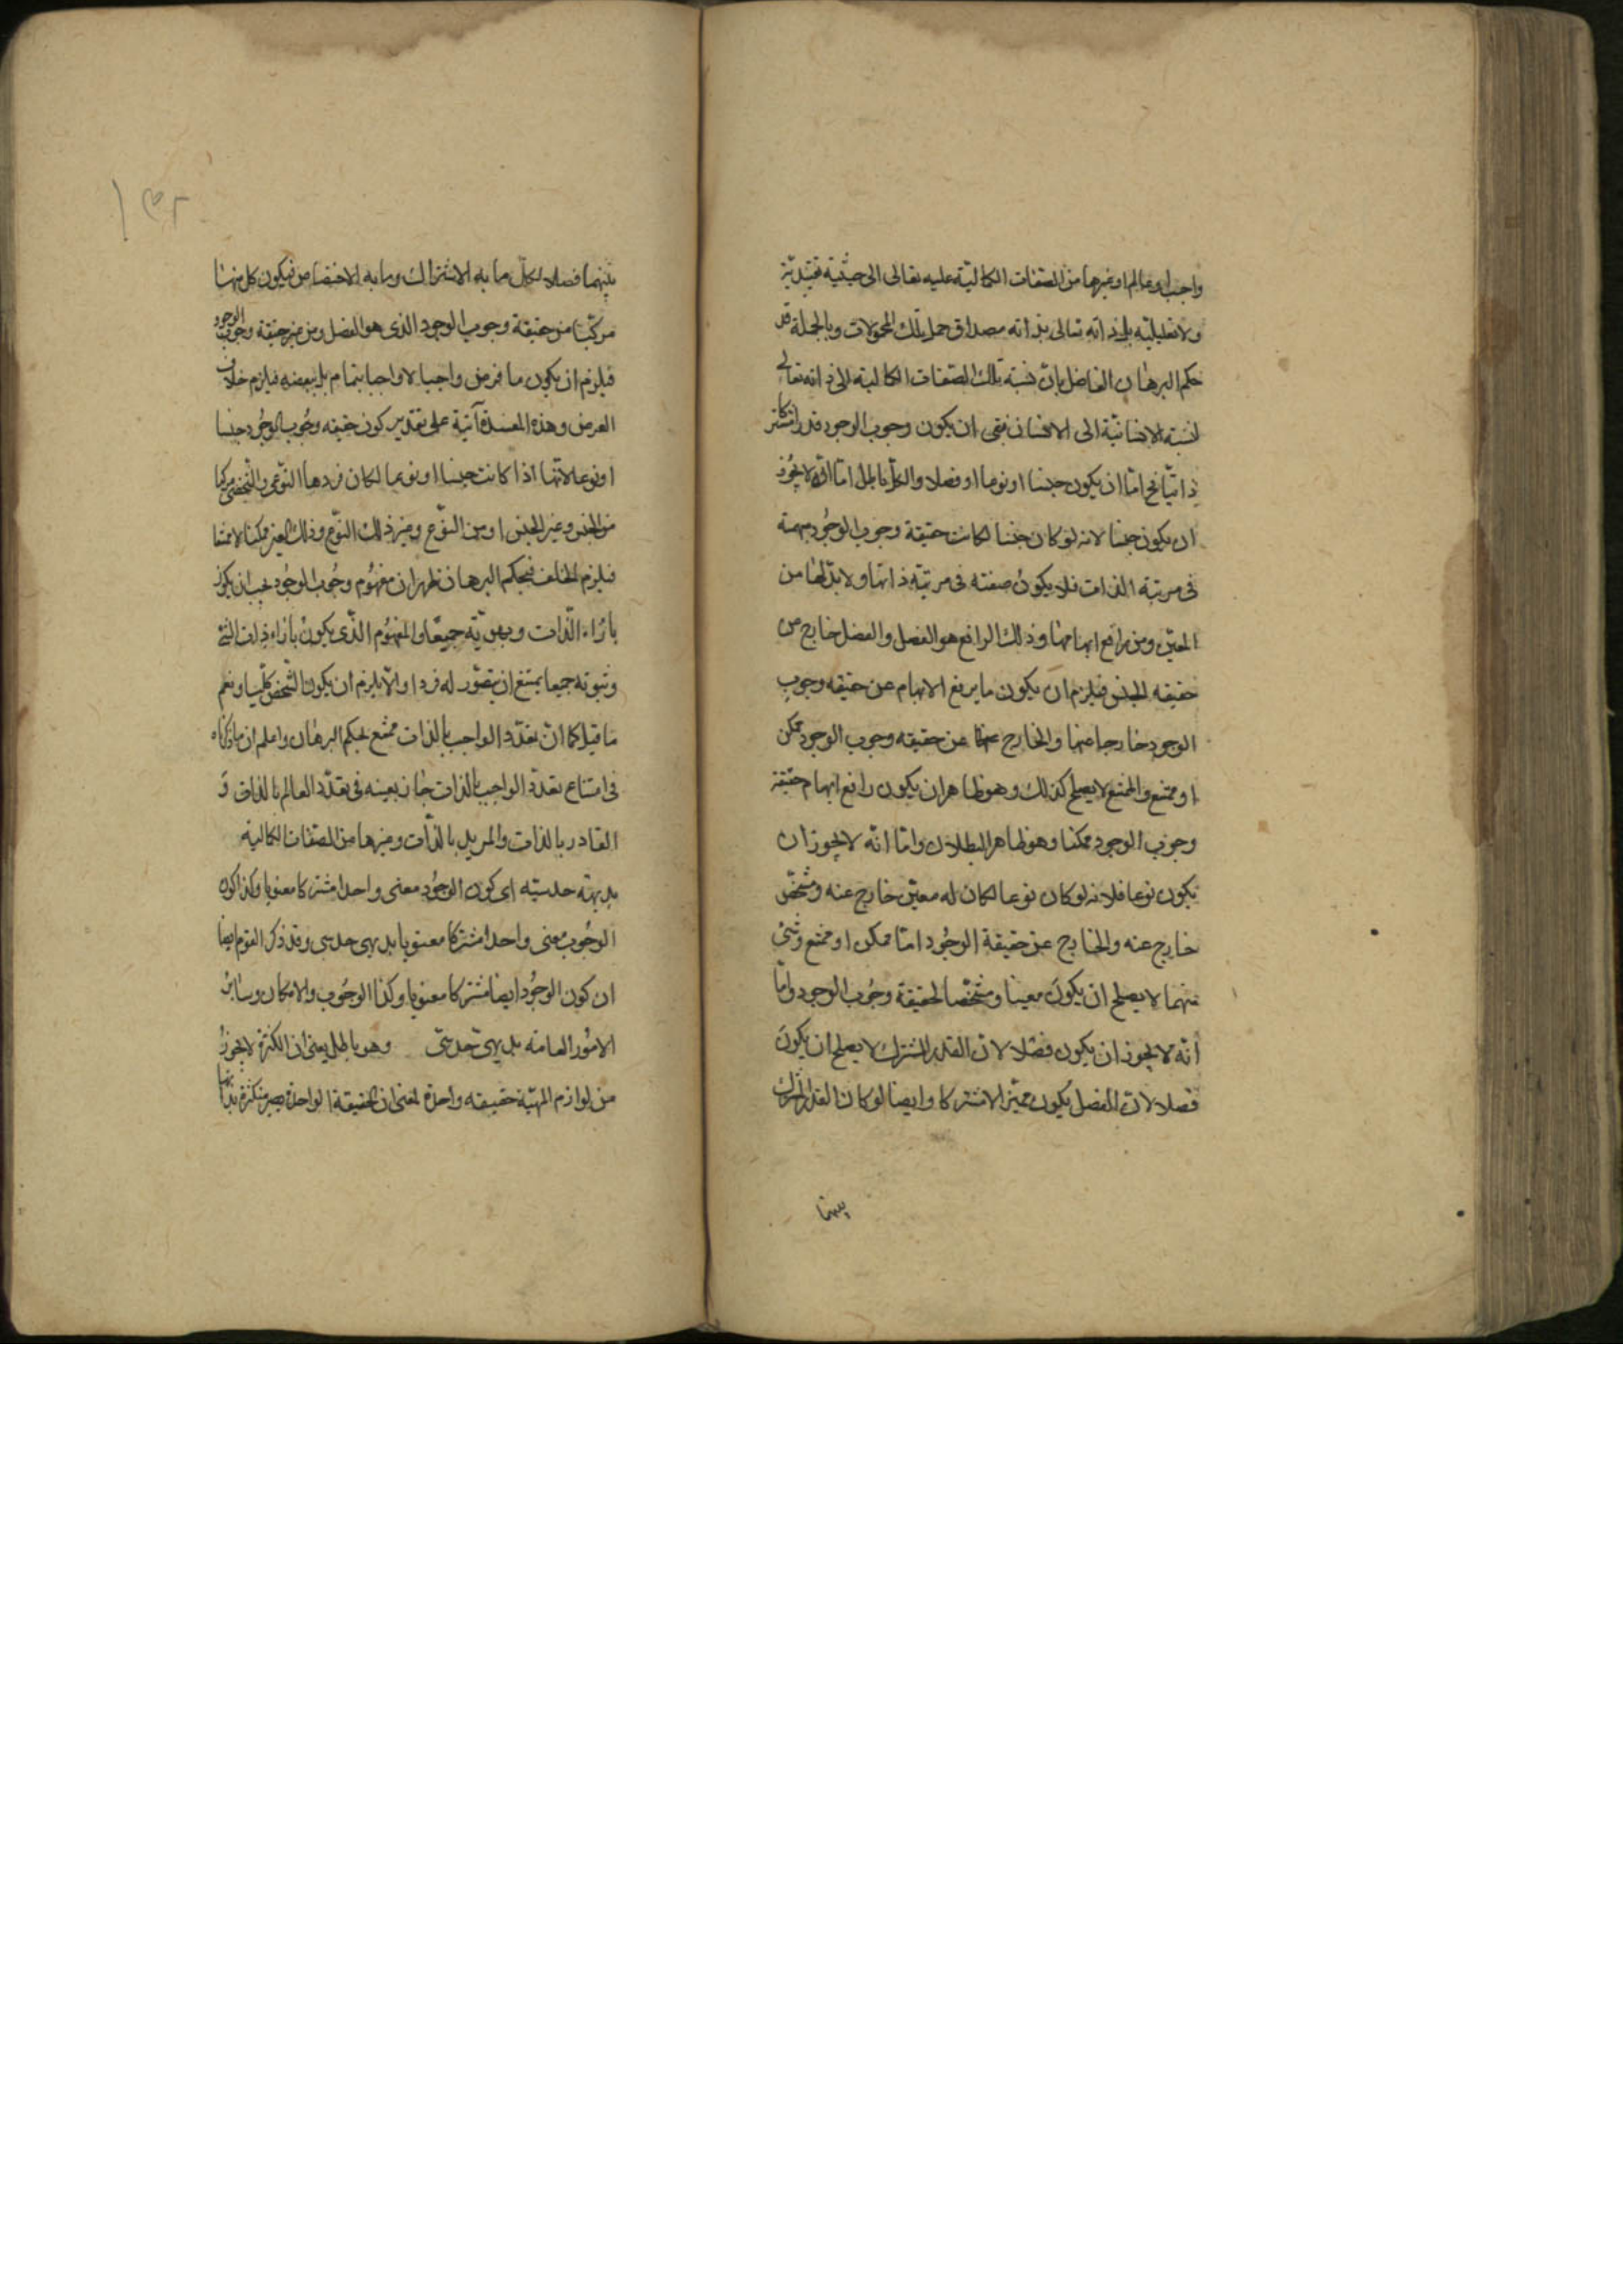 واجب او عالم او غيرها من الصفات الكمالية عليه تعالى الى حيثية تقييدية
ولا تعليلية بل ذاته تعالى بذاته مصداق حمل تلك المحمولات وبالجملة قد
حكم البرهان الفاضل بان نسبة تلك الصفات الكمالية الى ذاته تعالى
نسبة الانسانية الى الانسان فبقى ان يكون وجوب الوجود قدرا مشتركا
ذاتيا فح اما ان يكون جنسا او نوعا او فصلا والكل باطل اما انه لا يجوز
ان يكون جنسا لانه لو كان جنسا لكانت حقيقة وجوب الوجود مبهمة
فى مرتبة الذات فلا يكون صفته فى مرتبة ذاتها ولا بد لها من
المعين ومن رافع ابهامها وذلك الرافع هو الفصل والفصل خارج من
حقيقه الجنس فيلزم ان يكون ما يرفع الابهام عن حقيقه وجوب
الوجود خارجا عنها والخارج عن حقيقه وجوب الوجود ممكن
او ممتنع والممتنع لا يصلح كذلك وهو ظاهر ان يكون رافع ابهام حقيقة
وجوب الوجود ممكنا وهو ظاهر البطلان واما انه لا يجوز ان
يكون نوعا فلانه لو كان نوعا لكان له معين خارج عنه ومشخص
خارج عنه والخارج عن حقيقة الوجود اما ممكن او ممتنع وشئ
منهما لا يصلح ان يكون معينا ومشخصا لحقيقة وجوب الوجود واما
انه لا يجوز ان يكون فصلا لان القدر المشترك لا يصلح ان يكون
فصلا لان الفصل يكون مميزا لا مشتركا وايضا لو كان القدر المشترك
بينهما
١٣٢
بينهما فصلا لكان ما به الاشتراك وما به الاختصاص فيكون كل منهما
مركبا من حقيقة وجوب الوجود الذى هو الفصل ومن غير حقيقة وجوب الوجود
فيلزم ان يكون ما فرض واجبا لا واجبا بتمام بل ببعضه فيلزم خلاف
الفرض وهذه المفسدة آتية على تقدير كون حقيقه وجوب الوجود جنسا
او نوعا لانها اذا كانت جنسا او نوعا لكان فردها النوعى والشخصى مركبا
من الجنس وغير الجنس او من النوع وغير ذلك النوع وذلك الغير ممكنا لا ممتنعا
فيلزم الخلف فبحكم البرهان ظهر ان مفهوم وجوب الوجود يجب ان يكون
بازاء الذات وبهويته جميعا والمفهوم الذى يكون بازاء ذات الشئ
وثبوته جميعا يمتنع ان يتصور له فردا والا يلزم ان يكون الشخص كليا ونعم
ما قيل كما ان تعدد الواجب بالذات ممتنع بحكم البرهان واعلم ان ما ذكرناه
فى امتناع تعدد الواجب بالذات جار بعينه فى تعدد العالم بالذات و
القادر بالذات والمريد بالذات وغيرها من الصفات الكمالية
بديهة حدسيته اى كون الوجود معنى واحدا مشتركا معنويا وكذا كون
الوجوب معنى واحدا مشتركا معنويا بديهى حدسى وقد ذكر القوم ايضا
ان كون الوجود ايضا مشتركا معنويا وكذا الوجوب والامكان وسائر
الامور العامة بديهى حدسى وهو باطل يعنى ان الكثرة لا يجوز
من لوازم المهية حقيقه واحدة لمعنى ان الحقيقة الواحدة يصير متكثرة بذاتها